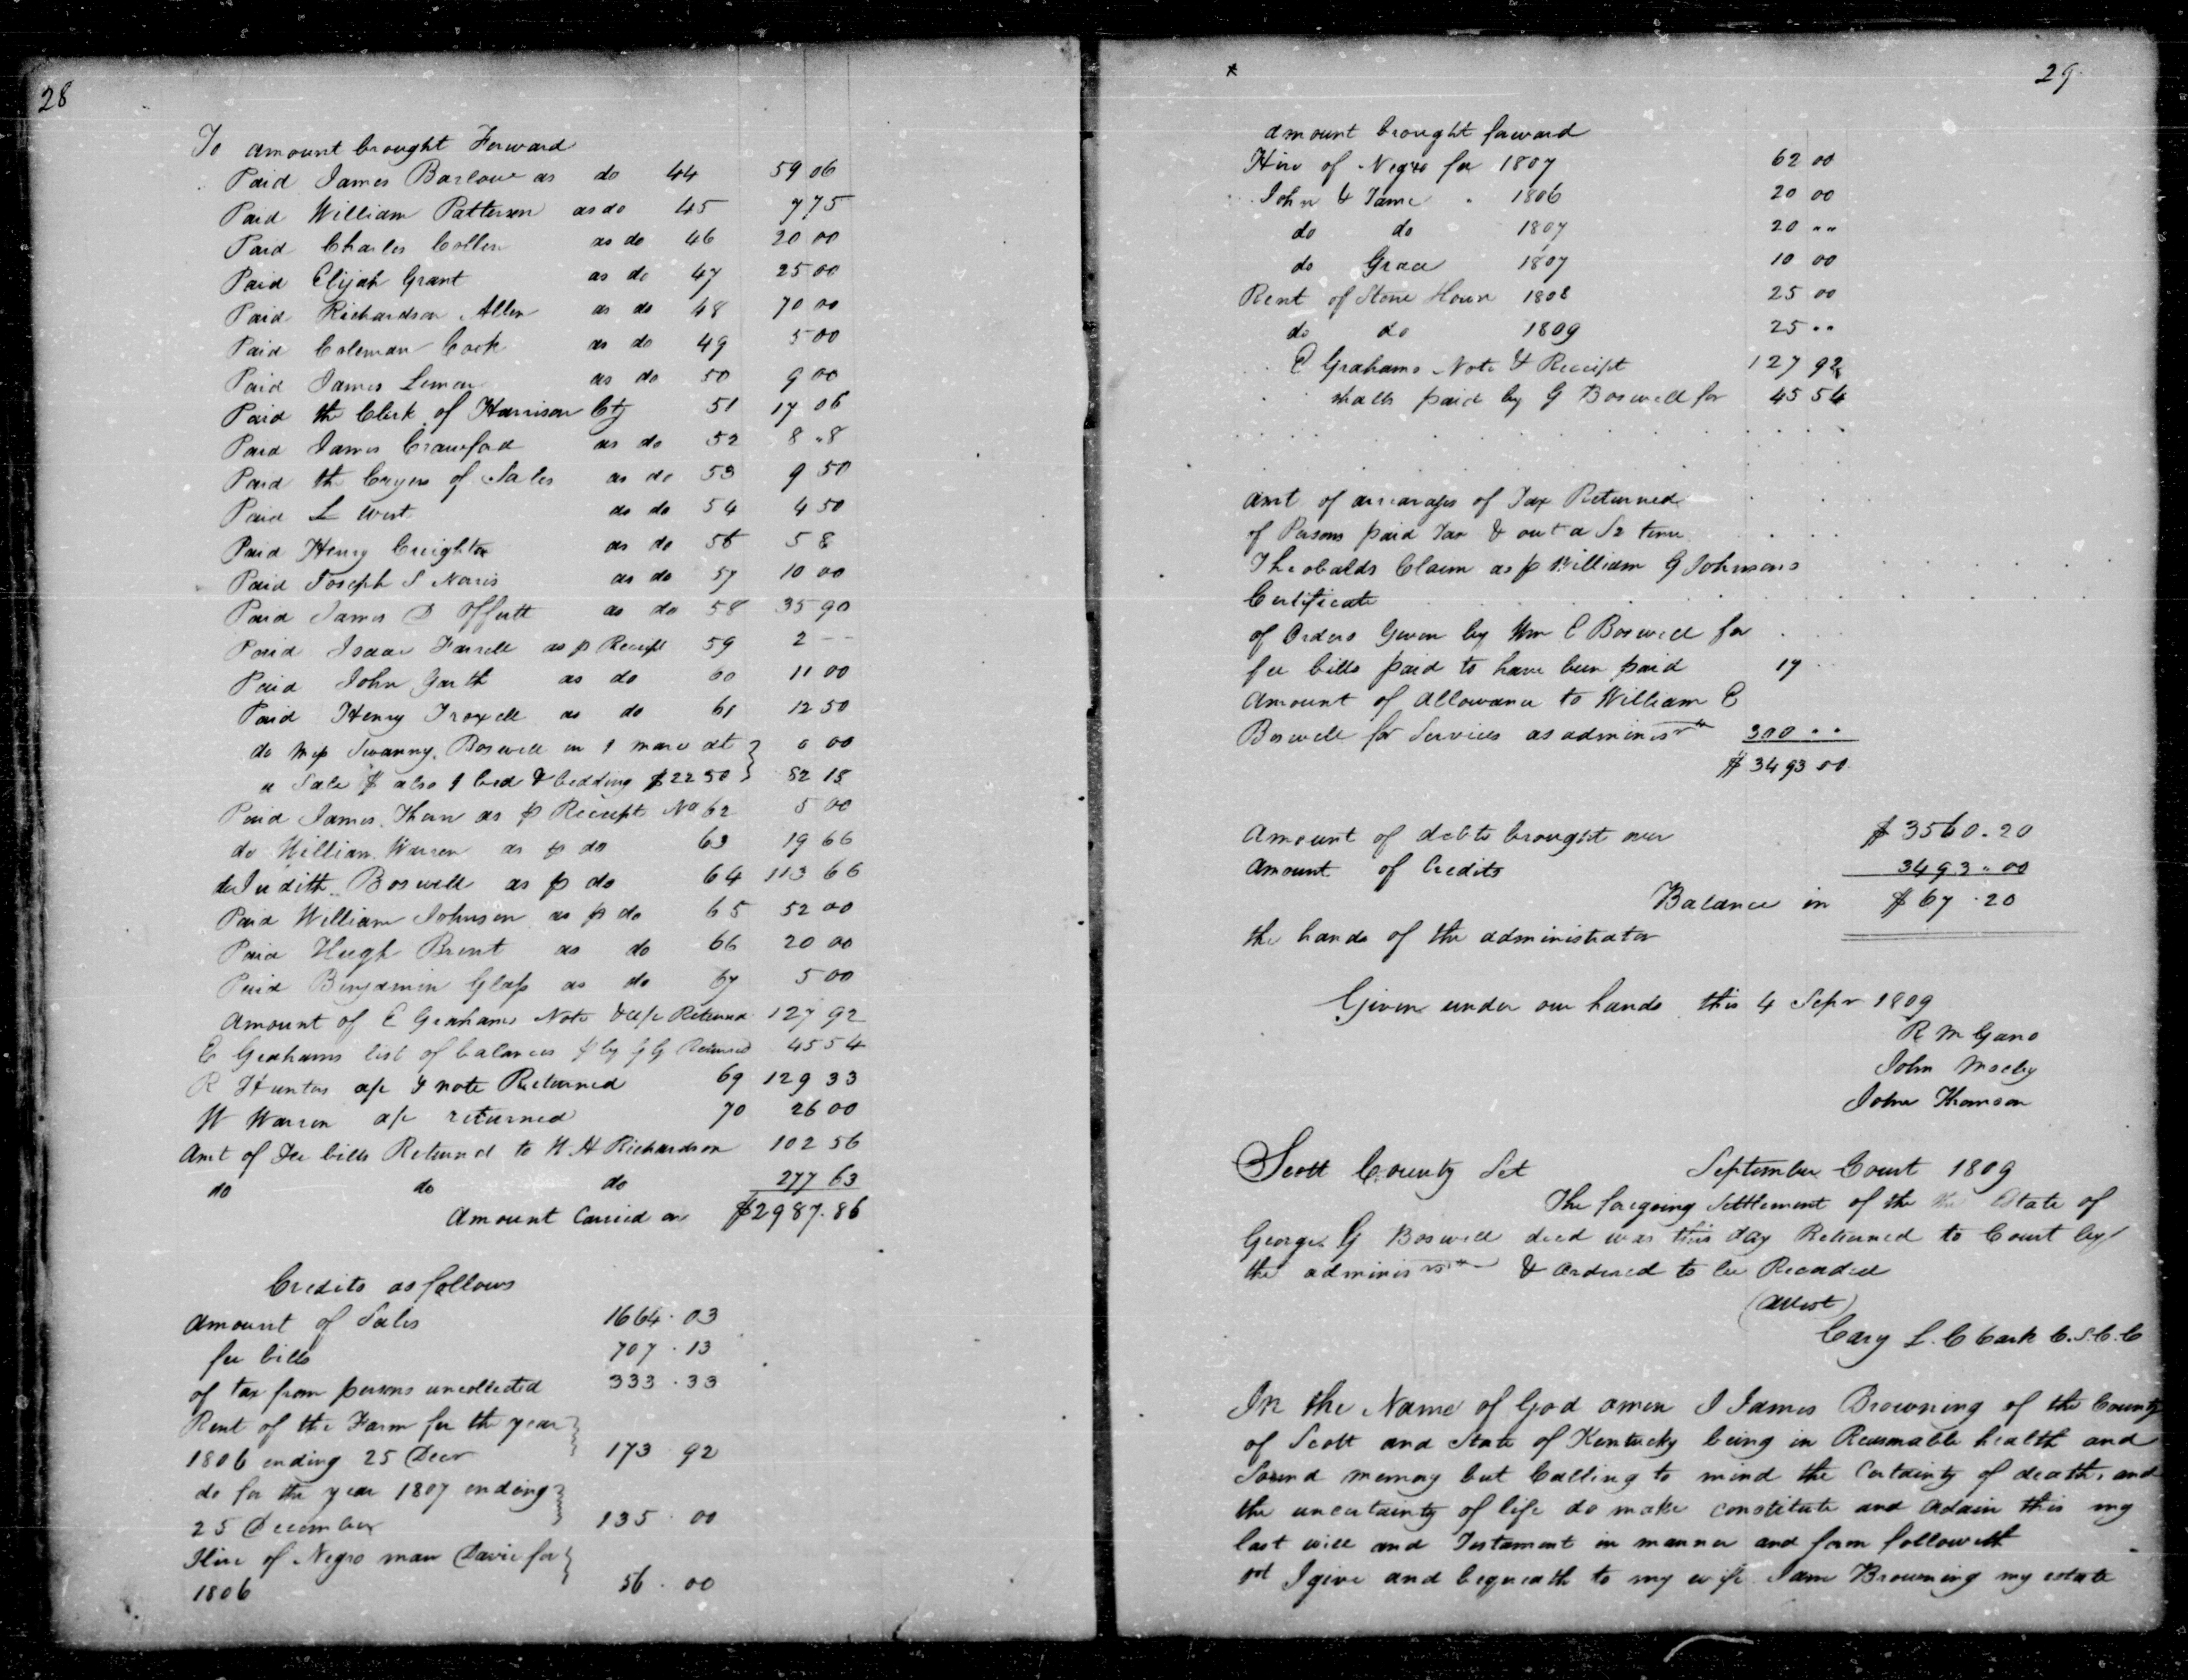 28
To amount brought Forward
Paid James Barlow as do 44 59 06
Paid William Patterson as do 45 7 75
Paid Charles Collen as do 46 20 00
Paid Elijah Grant as do 47 25 00
Paid Richardson Allen as do 48 70 00
Paid Coleman Cook as do 49 5 00
Paid James Lemon as do 50 9 00
Paid the Clerk of Harrison Cty 51 17 06
Paid James Crawford as do 52 8 "8
Paid the Cryers of Sales as do 53 9 50
Paid L West as do 54 4 50
Paid Henry Creighton as do 56 5 8
Paid Joseph S Norris as do 57 10 00
Paid James D Offutt as do 58 35 90
Paid Isaac Farrell as p Receipt 59 2 --
Paid John Garth as do 60 11 00
Paid Henry Troxell as do 61 12 50
do Mrs Boswell in 1 mare at 0 00
a Sale $ also 1 bed & bedding $22 50 82 18
Paid James Thorn as p Receipt No 62 5 00
do William Warren as p do 63 19 66
do Judith Boswell as p do 64 113 66
Paid William Johnson as p do 65 52 00
Paid Hugh Brent as do 66 20 00
Paid Benjamin Glass as do 67 5 00
Amount of E Grahams Note & a/c Returned 127 92
E Grahams list of balances by Returned 45 54
R Hunters a/c & note Returned 69 129 33
W Warren a/c returned 70 26 00
Amt of Fee bills Returned to W H Richardson 102 56
do do do 277 63
Amount Carried on $2987.86
Credits as follows
Amount of Sales 1664.03
fee bills 707.13
of tax from persons uncollected 333.33
Rent of the Farm for the year
1806 ending 25 Decr 173.92
do for the year 1807 ending
25 December 135.00
Hire of Negro man Davie for
1806 56.00
29
amount brought forward
Hire of Negro for 1807 62 00
John & Jame 1806 20 00
do do 1807 20 ""
do Grace 1807 10 00
Rent of Stone House 1808 25 00
do do 1809 25 ""
E Grahams Note & Receipt 127 92
paid by G Boswell for 45 54
Amt of arrearages of Tax Returned
of Persons paid Tax &
Theobalds Claim as p William G Johnsons
Certificate
of Orders Given by Wm E Boswell for
fee bills paid to have been paid 17
Amount of Allowance to William E
Boswell for Services as administr 300 ""
$3493 00
Amount of debts brought over $3560.20
Amount of Credits 3493.00
Balance in $67.20
the hands of the administrator
Given under our hands this 4 Sepr 1809
R M Gano
John Mosby
John Thomson
Scott County Sct September Court 1809
The foregoing Settlement of the the Estate of
George G Boswell decd was this day Returned to Court by
the administr & Ordered to be Recorded
(Attest)
Cary L. Clark C.S.C.C
In the Name of God amen I James Browning of the County
of Scott and State of Kentucky being in Reasonable health and
Sound memory but Calling to mind the Certainty of death, and
the uncertainty of life do make constitute and Ordain this my
last will and Testament in manner and form followeth
I give and bequeath to my wife Jane Browning my estate